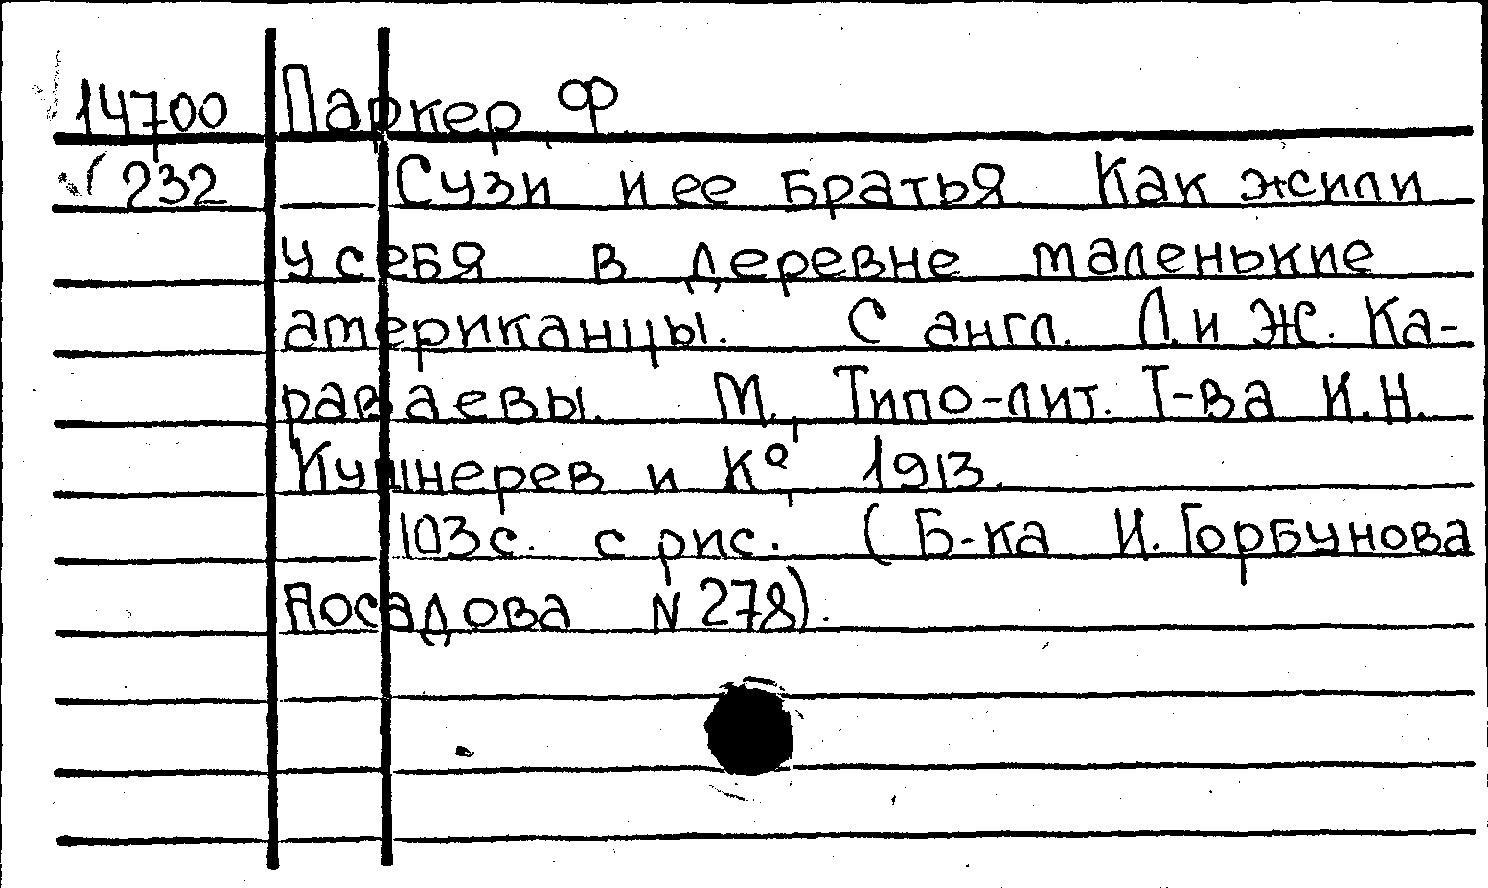 14700 Паркер Ф
√ 232 Сузи и ее братья Как жили
у себя в деревне маленькие
американцы. С англ. Л. и Ж. Ка-
раваевы. М., Типо-лит. Т-ва И.Н.
Кушнерев и К°, 1913.
103с. с рис. (Б-ка И. Горбунова
Посадова N 278).